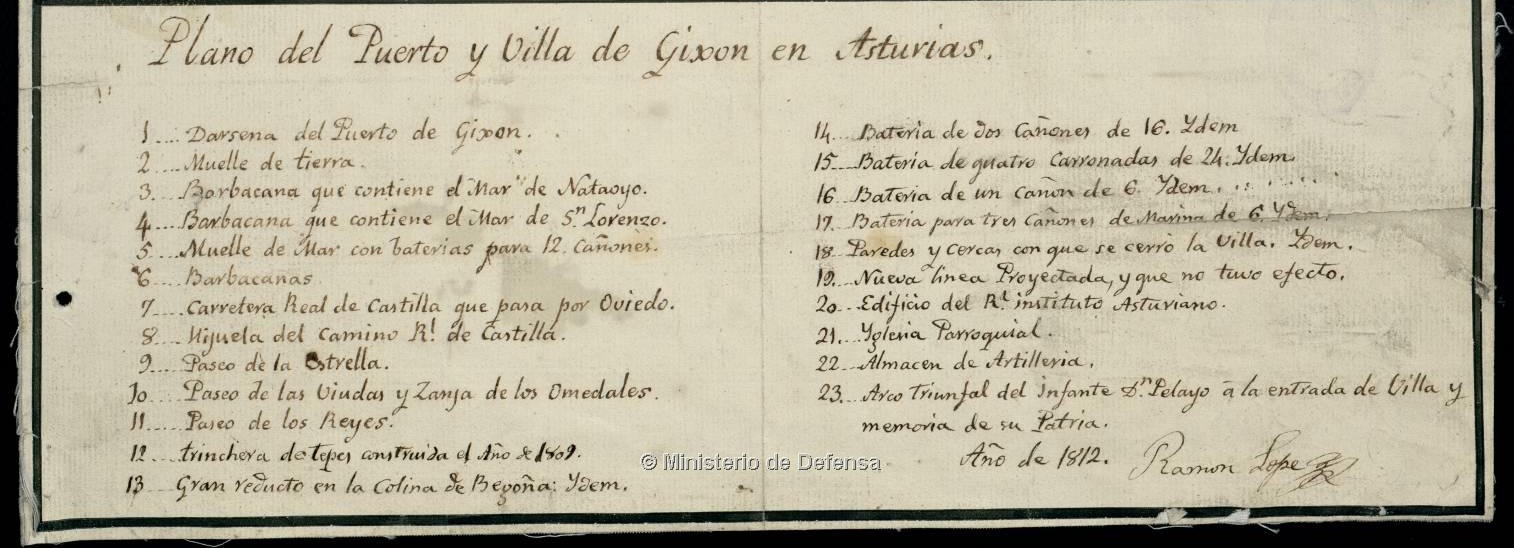 Plano del Puerto y Villa de Gixon en Asturias.
1.... Darsena del Puerto de Gixon.
2.... Muelle de tierra.
3.... Barbacana que contiene el Mar de Nataoyo.
4.... Barbacana que contiene el Mar de Sn Lorenzo.
5.... Muelle de Mar con baterias para 12 Cañones.
6.... Barbacanas
7.... Carretera Real de Castilla que pasa por Oviedo.
8.... Hijuela del Camino Rl. de Castilla.
9.... Paseo de la Estrella.
10.... Paseo de las Viudas y Zanja de los Omedales.
11.... Paseo de los Reyes.
12.... trinchera de tepes construida el Año de 1809.
13.... Gran reducto en la Colina de Begoña: Ydem.
14.... Bateria de dos Cañones de 16. Ydem
15.... Bateria de quatro Carronadas de 24. Ydem
16.... Bateria de un Cañon de 6. Ydem.
17.... Bateria para tres Cañones de Marina de 6. Ydem.
18.... Paredes y cercas con que se cerró la Villa. Ydem.
19.... Nueva linea Proyectada, y que no tuvo efecto.
20.... Edificio del Rl. instituto Asturiano.
21.... Yglesia Parroquial.
22.... Almacen de Artilleria.
23.... Arco triunfal del infante Dn. Pelayo á la entrada de Villa y
memoria de su Patria.
Año de 1812. Ramon Lopez
© Ministerio de Defensa